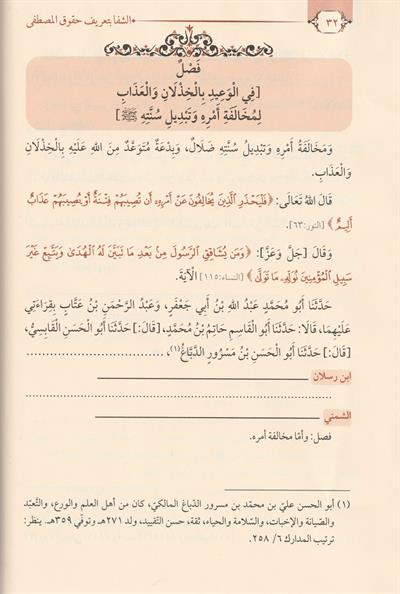 ٣٢
الشفا بتعريف حقوق المصطفى
فَصْلٌ
[فِي الْوَعِيدِ بِالْخِذْلَانِ وَالْعَذَابِ
لِمُخَالَفَةِ أَمْرِهِ وَتَبْدِيلِ سُنَّتِهِ ﷺ]
وَمَخَالَفَةُ أَمْرِهِ وَتَبْدِيلُ سُنَّتِهِ ضَلَالٌ، وَبِدْعَةٌ مُتَوَعَّدٌ مِنَ اللهِ عَلَيْهِ بِالْخِذْلَانِ
وَالْعَذَابِ.
قَالَ اللهُ تَعَالَى: ﴿فَلْيَحْذَرِ الَّذِينَ يُخَالِفُونَ عَنْ أَمْرِهِ أَن تُصِيبَهُمْ فِتْنَةٌ أَوْ يُصِيبَهُمْ عَذَابٌ
أَلِيمٌ﴾ [النور: ٦٣].
وَقَالَ [جَلَّ وَعَزَّ]: ﴿وَمَن يُشَاقِقِ الرَّسُولَ مِن بَعْدِ مَا تَبَيَّنَ لَهُ الْهُدَىٰ وَيَتَّبِعْ غَيْرَ
سَبِيلِ الْمُؤْمِنِينَ نُوَلِّهِ مَا تَوَلَّىٰ﴾ [النساء: ١١٥] الْآيَةَ.
حَدَّثَنَا أَبُو مُحَمَّدٍ عَبْدُ اللهِ بْنُ أَبِي جَعْفَرٍ، وَعَبْدُ الرَّحْمَنِ بْنُ عَتَّابٍ بِقِرَاءَتِي
عَلَيْهِمَا، قَالَا: حَدَّثَنَا أَبُو الْقَاسِمِ حَاتِمُ بْنُ مُحَمَّدٍ، [قَالَ:] حَدَّثَنَا أَبُو الْحَسَنِ الْقَابِسِيُّ،
[قَالَ:] حَدَّثَنَا أَبُو الْحَسَنِ بْنُ مَسْرُورٍ الدَّبَّاغُ(١)، ........................................
ابن رسلان
........................................................................
الشمني
فصل: وأمّا مخالفة أمره.
(١) أبو الحسن عليّ بن محمّد بن مسرور الدّباغ المالكيّ، كان من أهل العلم والورع، والتّعبّد
والصّيانة والإخبات، والسّلامة والحياء، ثقة، حسن التّقييد، ولد ٢٧١هـ وتوفّي ٣٥٩هـ. ينظر:
ترتيب المدارك ٦/ ٢٥٨.